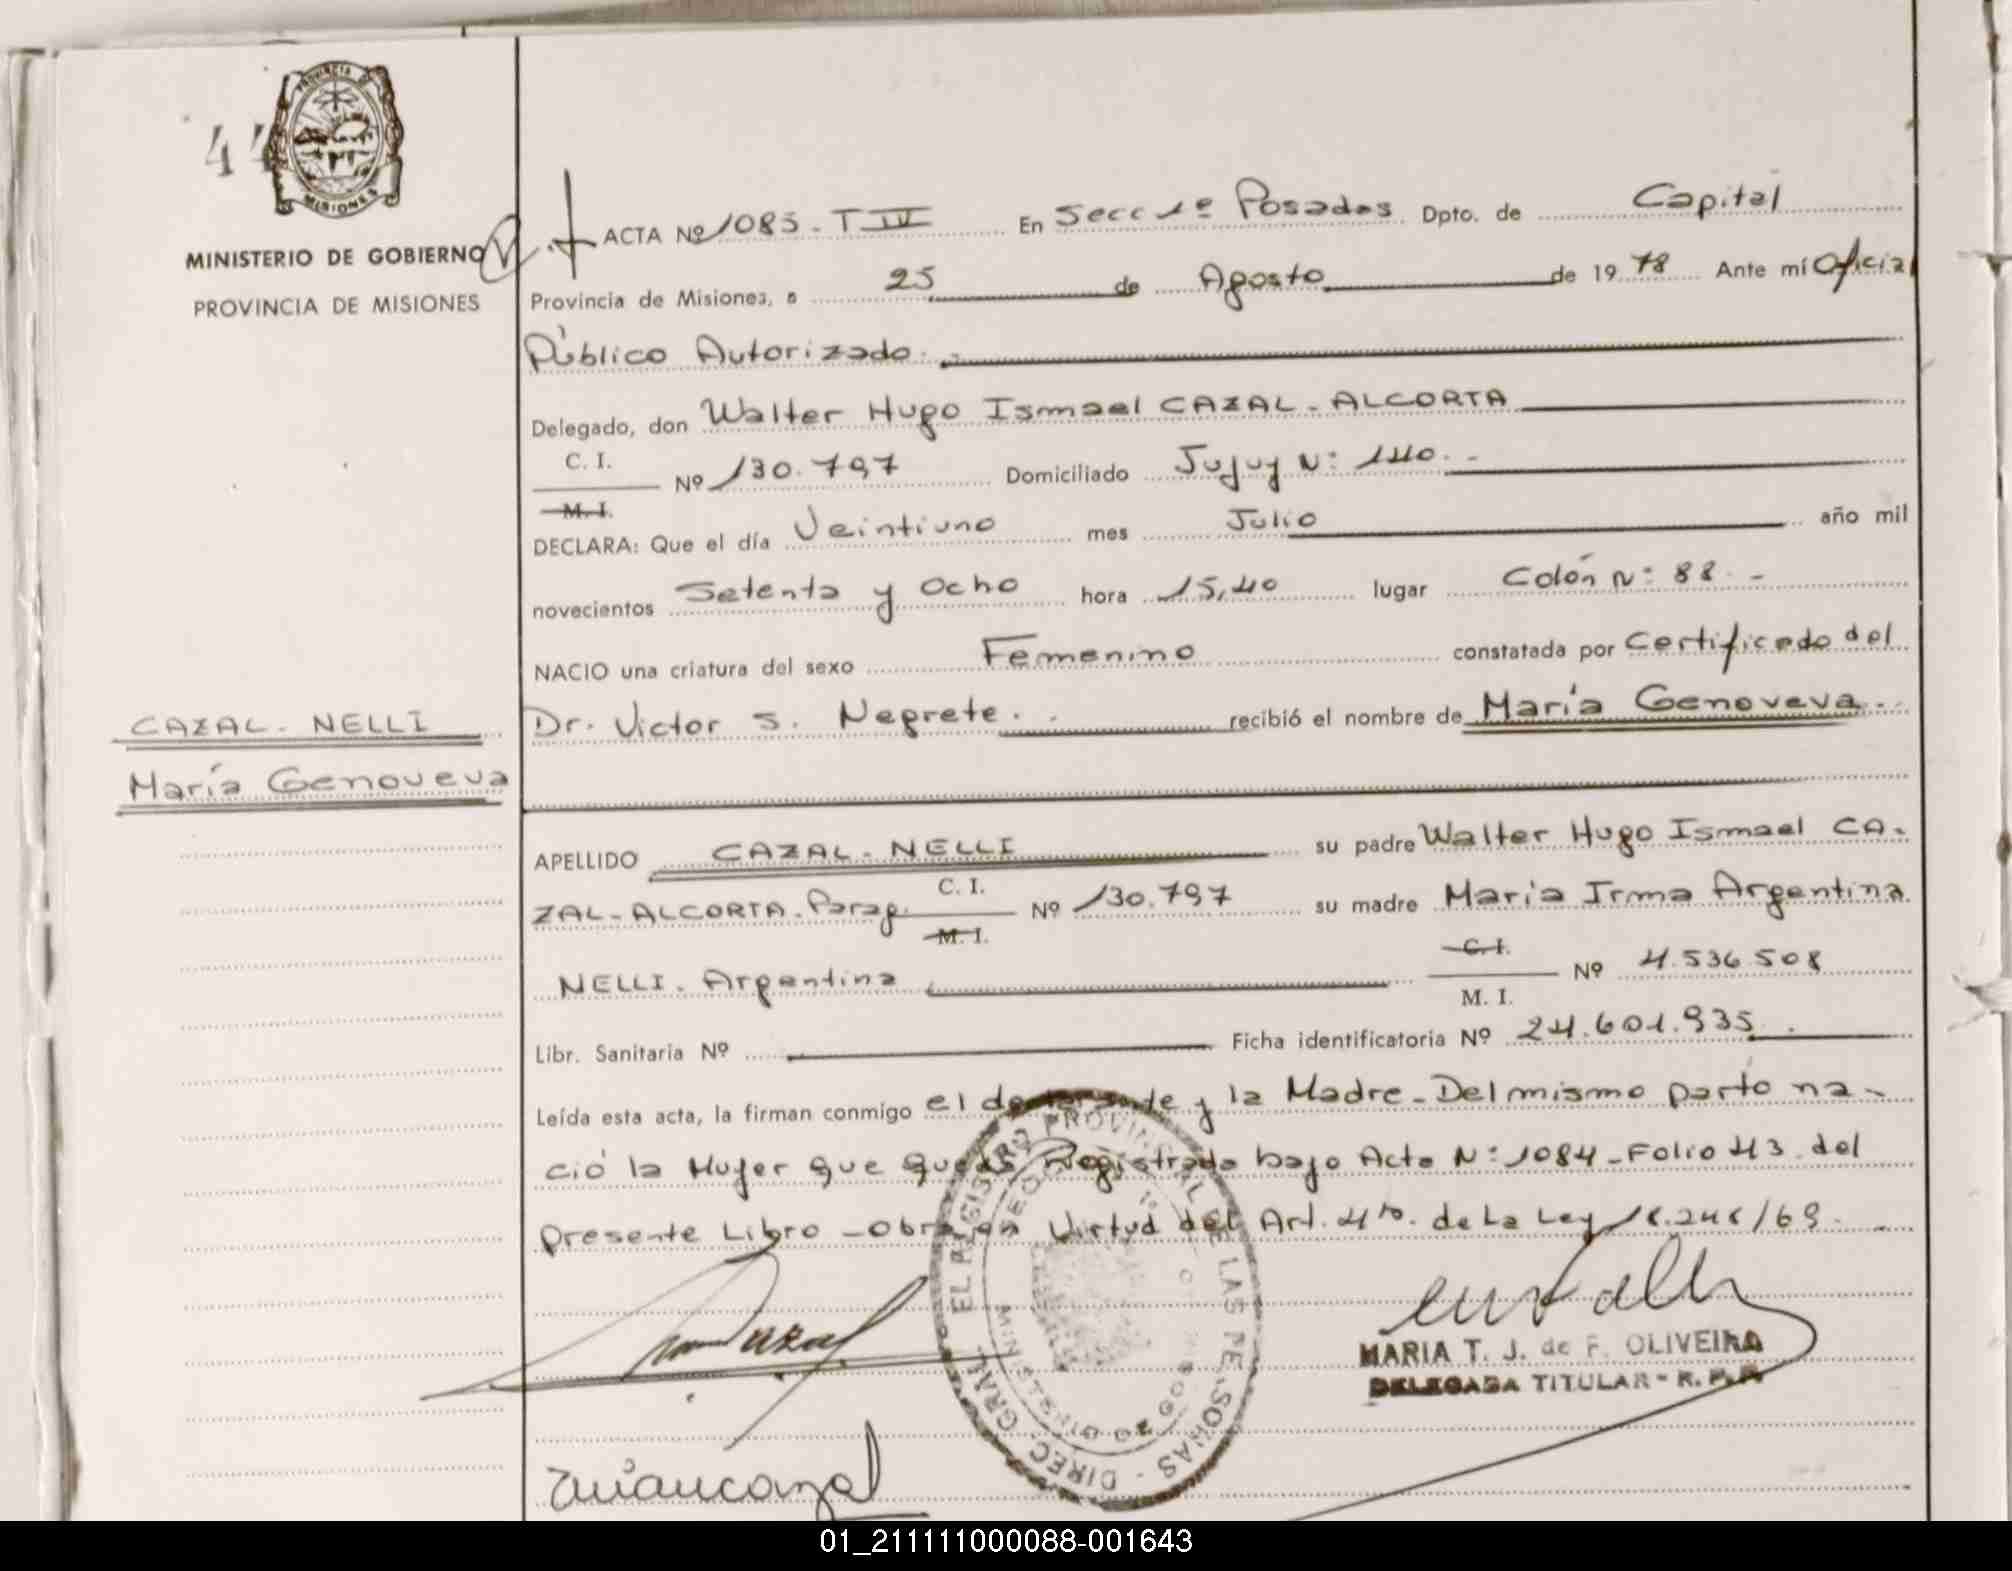 44
PROVINCIA DE
MISIONES
MINISTERIO DE GOBIERNO
PROVINCIA DE MISIONES
CAZAL-NELLI
María Genoveva
ACTA Nº 1085-T IV En Secc 1º Posadas Dpto. de Capital
Provincia de Misiones, a 25 de Agosto de 1978 Ante mí Oficial
Público Autorizado.-
Delegado, don Walter Hugo Ismael CAZAL-ALCORTA
C. I.
Nº 130.797 Domiciliado Jujuy Nº 140.-
M. I.
DECLARA: Que el día Veintiuno mes Julio año mil
novecientos Setenta y Ocho hora 15,40 lugar Colón Nº 88.-
NACIO una criatura del sexo Femenino constatada por Certificado del
Dr. Victor S. Negrete.- recibió el nombre de María Genoveva.-
APELLIDO CAZAL-NELLI su padre Walter Hugo Ismael CA-
C. I.
ZAL-ALCORTA-Parag. Nº 130.797 su madre María Irma Argentina
M. I.
C. I.
NELLI-Argentina Nº 4.536.508
M. I.
Libr. Sanitaria Nº Ficha identificatoria Nº 24.601.935.
Leída esta acta, la firman conmigo el declarante y la Madre-Del mismo parto na-
ció la Mujer que queda Registrada bajo Acta Nº 1084-Folio 43 del
presente Libro-Obra en Virtud del Art. 4to. de La Ley 18.248/69.-
DIREC. GRAL. EL REGISTRO PROVINCIAL DE LAS PERSONAS
MINISTERIO DE GOB
MARIA T. J. de F. OLIVEIRA
DELEGADA TITULAR - R. P. P.
01_211111000088-001643